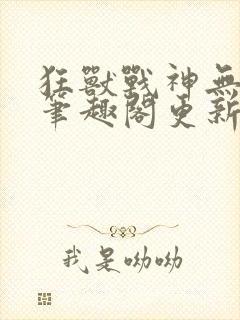 狂獸戰神無
筆趣閣更新
我是呦呦